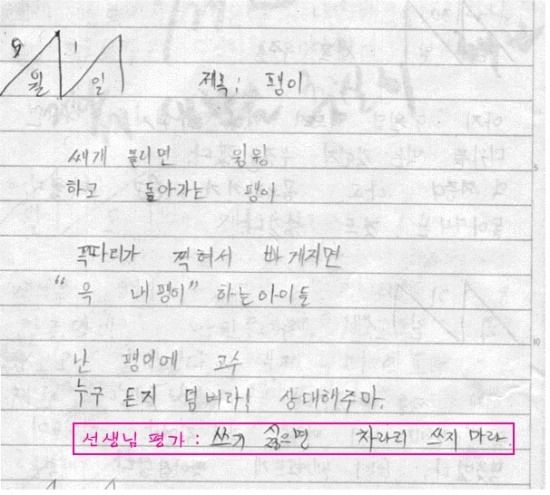 9월 1일
제목: 팽이
쎄게 돌리면 윙윙
하고 돌아가는 팽이
꼭따리가 찍혀서 빠게지면
“윽 내팽이” 하는아이들
난 팽이에 고수
누구 든지 덤벼라! 상대해주마.
선생님 평가 : 쓰기 싫으면 차라리 쓰지 마라.